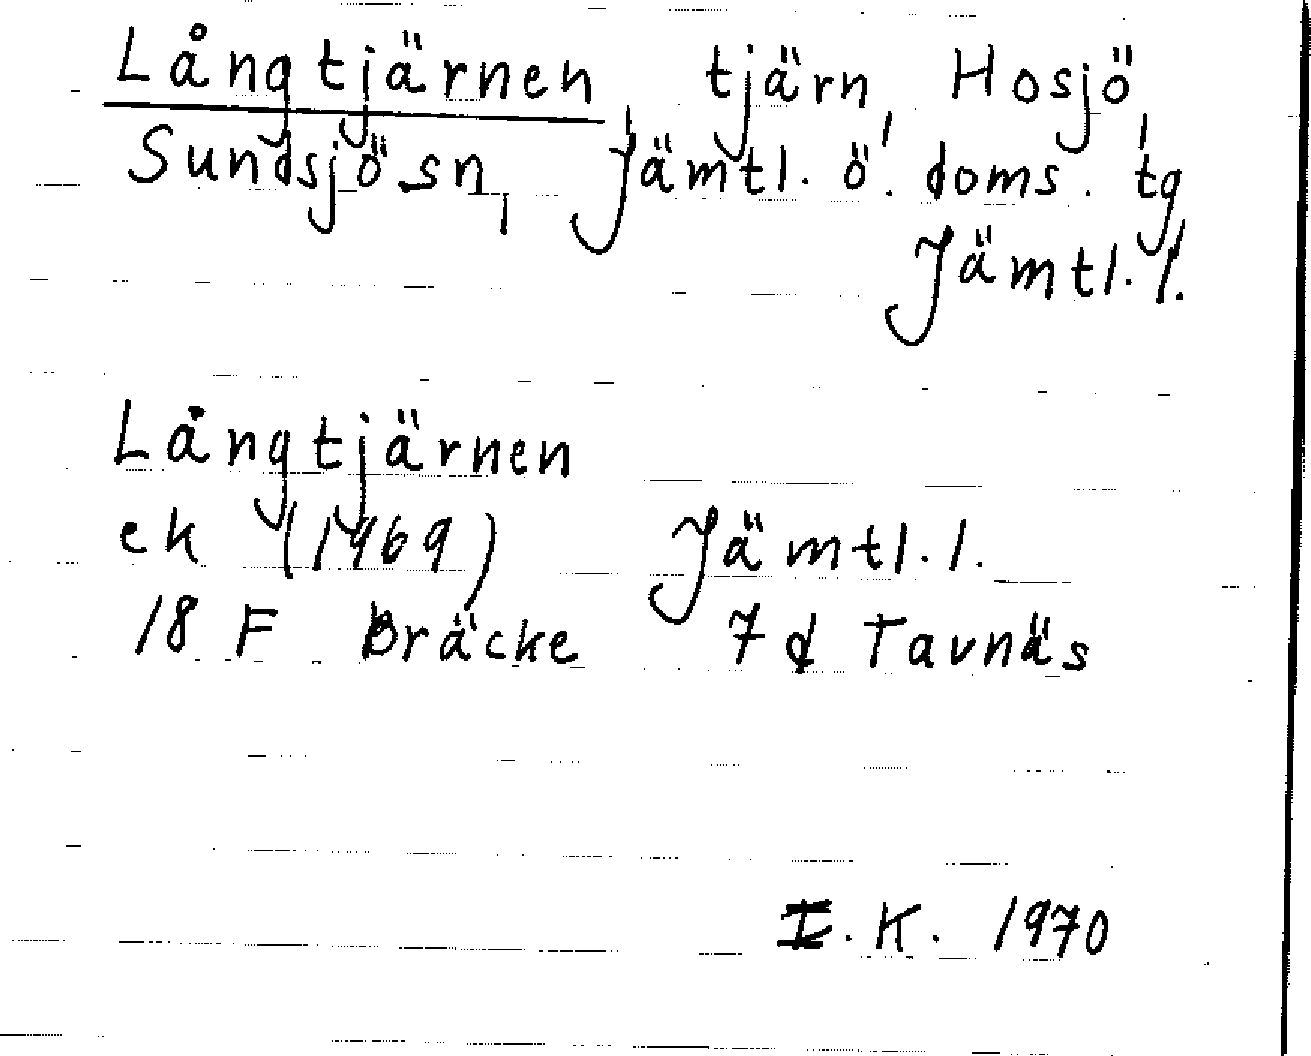 Långtjärnen, tjärn, Hosjö,
Sundsjö sn, Jämtl. ö. doms. tg
Jämtl. l.
Långtjärnen
ek (1969) Jämtl. l.
18 F Bräcke 7 d Tavnäs
I. K. 1970